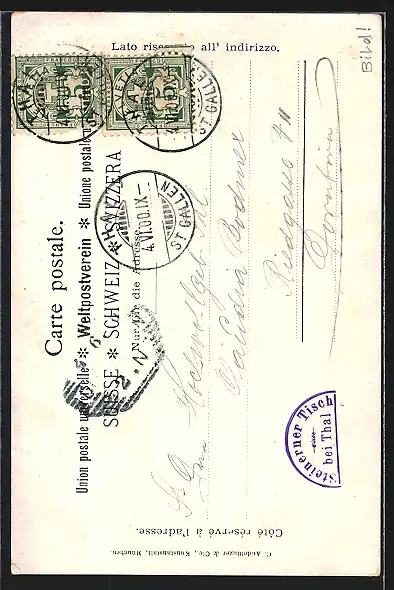 Bild!
Carte postale.
Union postale universelle ✻ Weltpostverein ✻ Unione postale
SUISSE ✻ SCHWEIZ ✻ SVIZZERA
Nur für die Adresse.
Lato riservato all' indirizzo.
Côté réservé à l'adresse.
THAL
4.VI.00.IX-
ST GALLEN
ST GALLEN
HELVETIA
5
Claudia Bodmer
Riedgasse
Dornbirn
Steinerner Tisch
bei Thal
C. Andelfinger & Cie., Kunstanstalt, München.